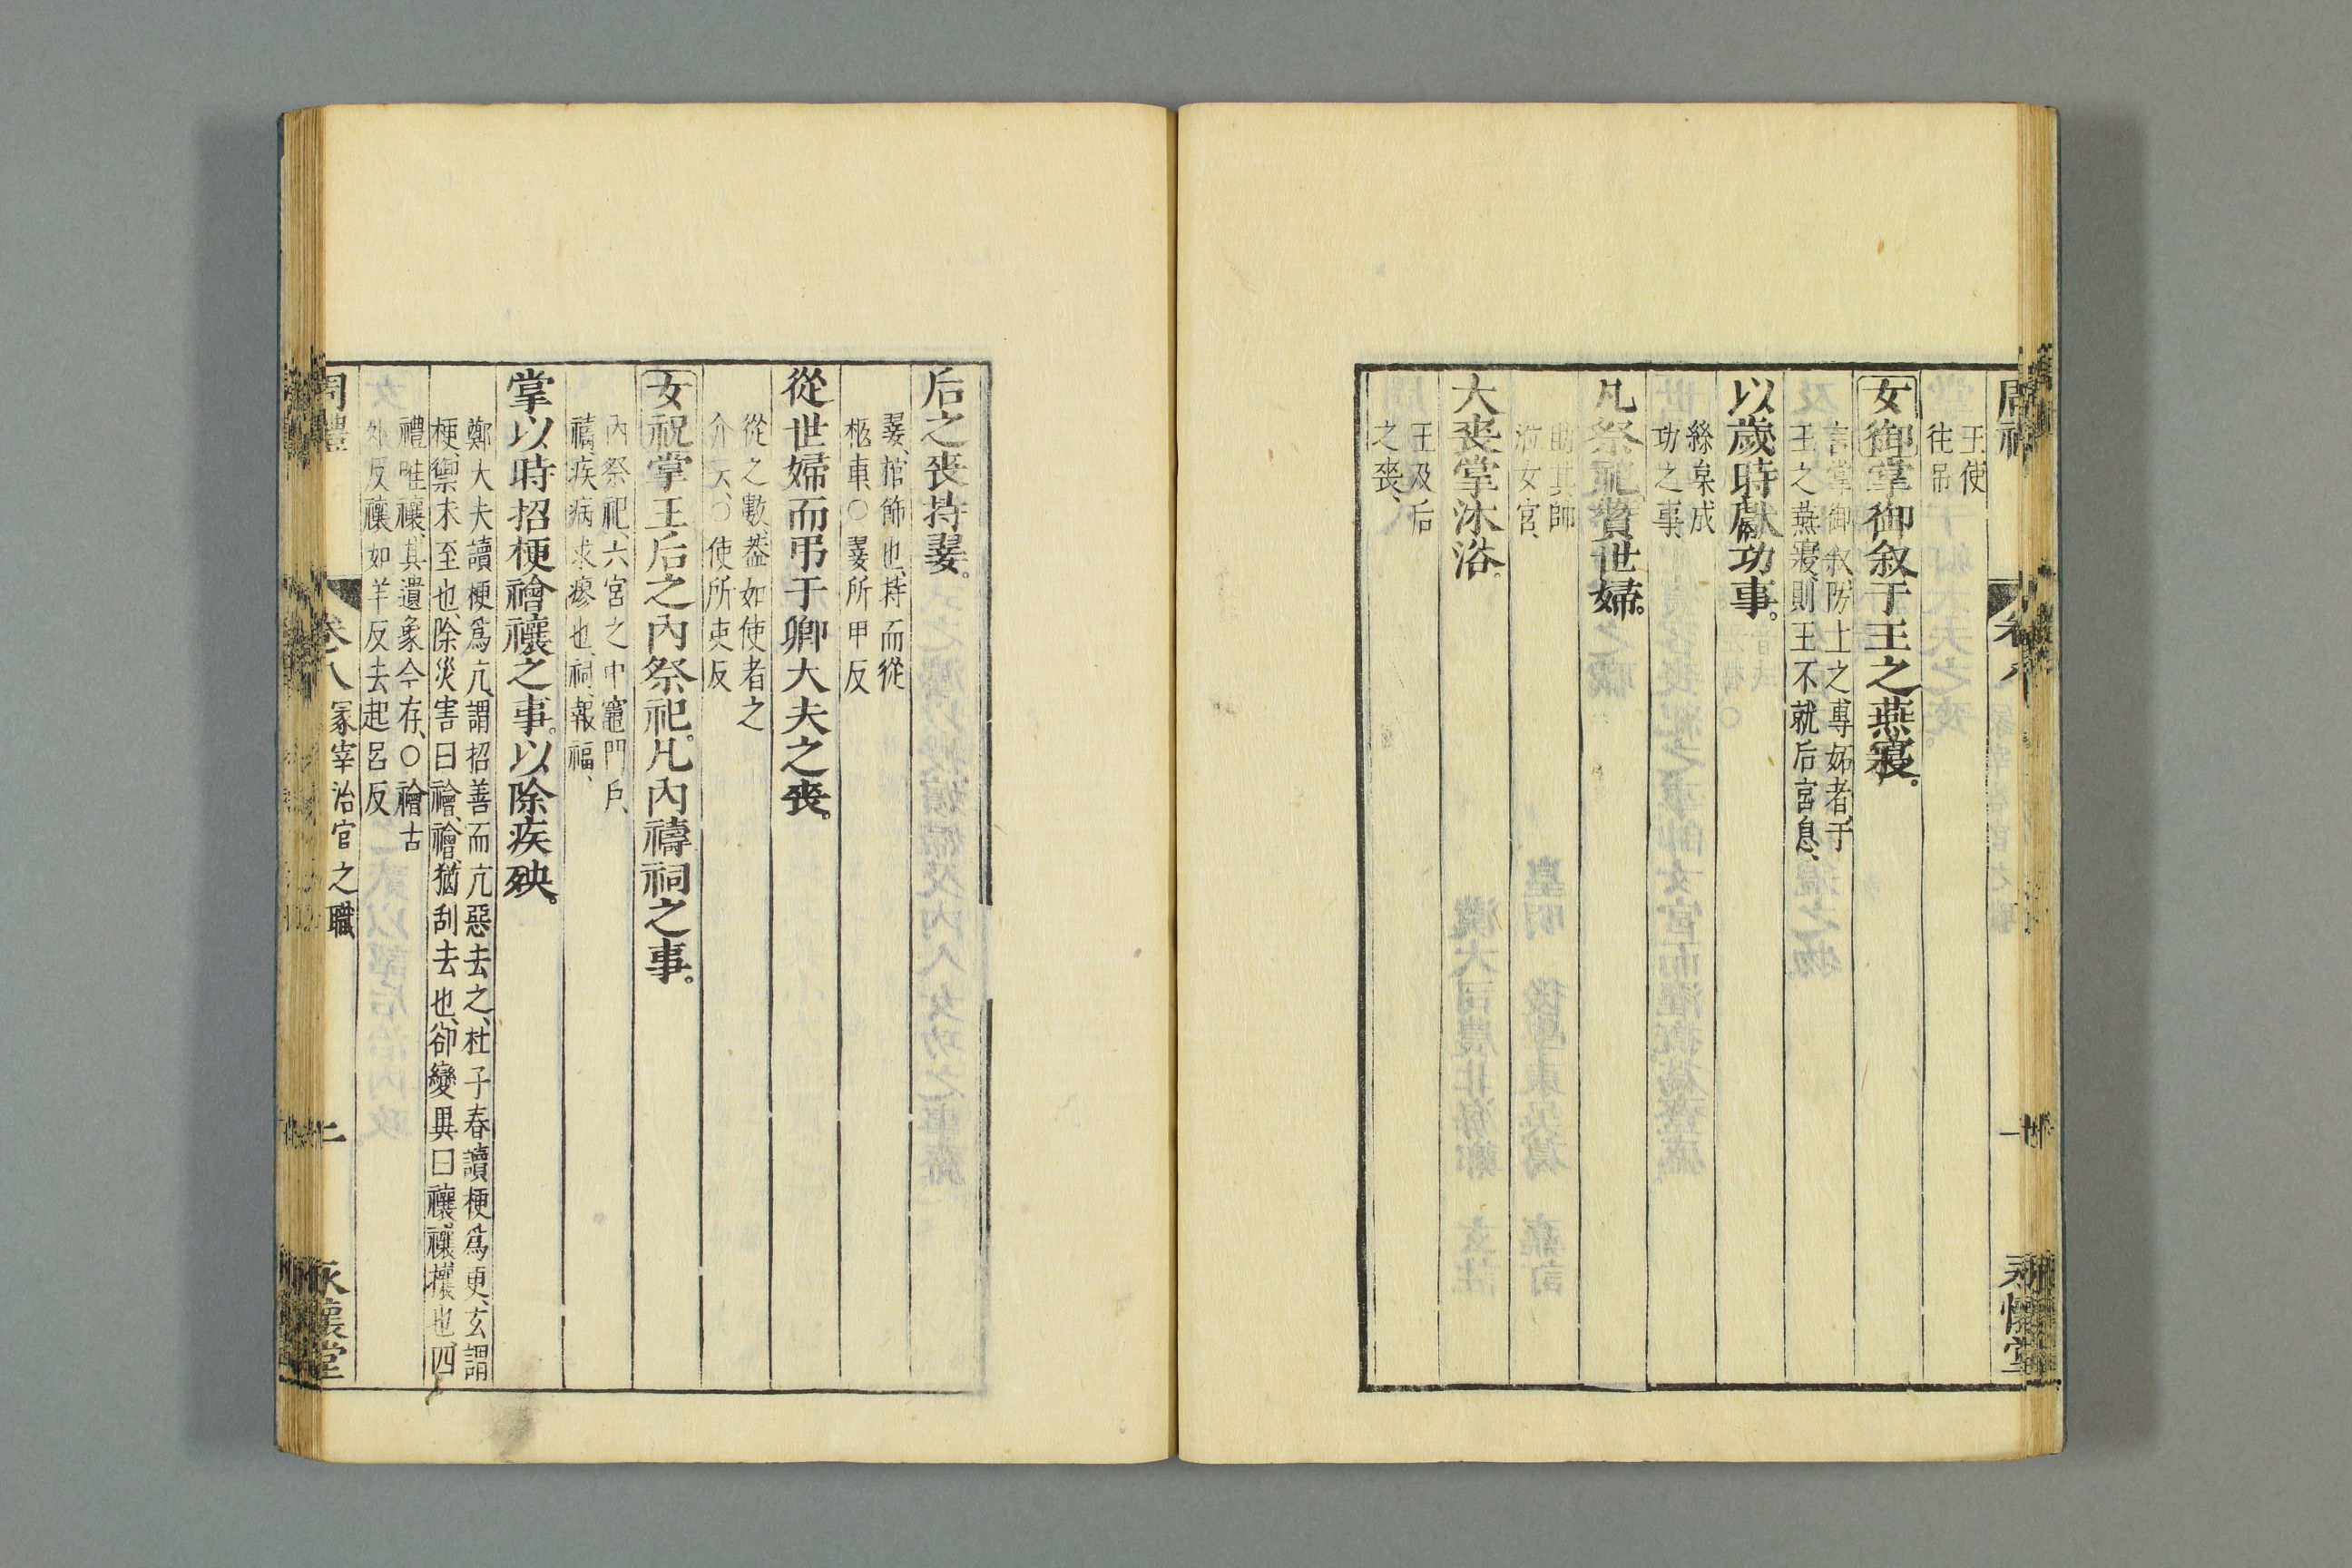 周禮
卷八
十
永懷堂
王使
往吊
女御掌御叙于王之燕寢。
言掌御叙防上之專妬者于
王之燕寢則王不就后宮息、
以歲時獻功事。
絲枲成
功之事、
凡祭祀贊世婦。
助其帥
涖女官、
大喪掌沐浴。
王及后
之喪、
后之喪持翣。
翣、棺飾也、持而從
柩車○翣所甲反
從世婦而弔于卿大夫之喪。
從之數、蓋如使者之
介云、○使所吏反
女祝掌王后之內祭祀。凡內禱祠之事。
內祭祀、六宮之中竈門戶、
禱、疾病求瘳也、祠、報福、
掌以時招梗禬禳之事。以除疾殃。
鄭大夫讀梗爲亢、謂招善而亢惡去之、杜子春讀梗爲更、玄謂
梗、禦未至也、除災害曰禬、禬、猶刮去也、卻變異曰禳、禳、攘也、四
禮唯禳、其遺象今存、○禬古
外反禳如羊反去起呂反
周禮
卷八
冢宰治官之職
永懷堂